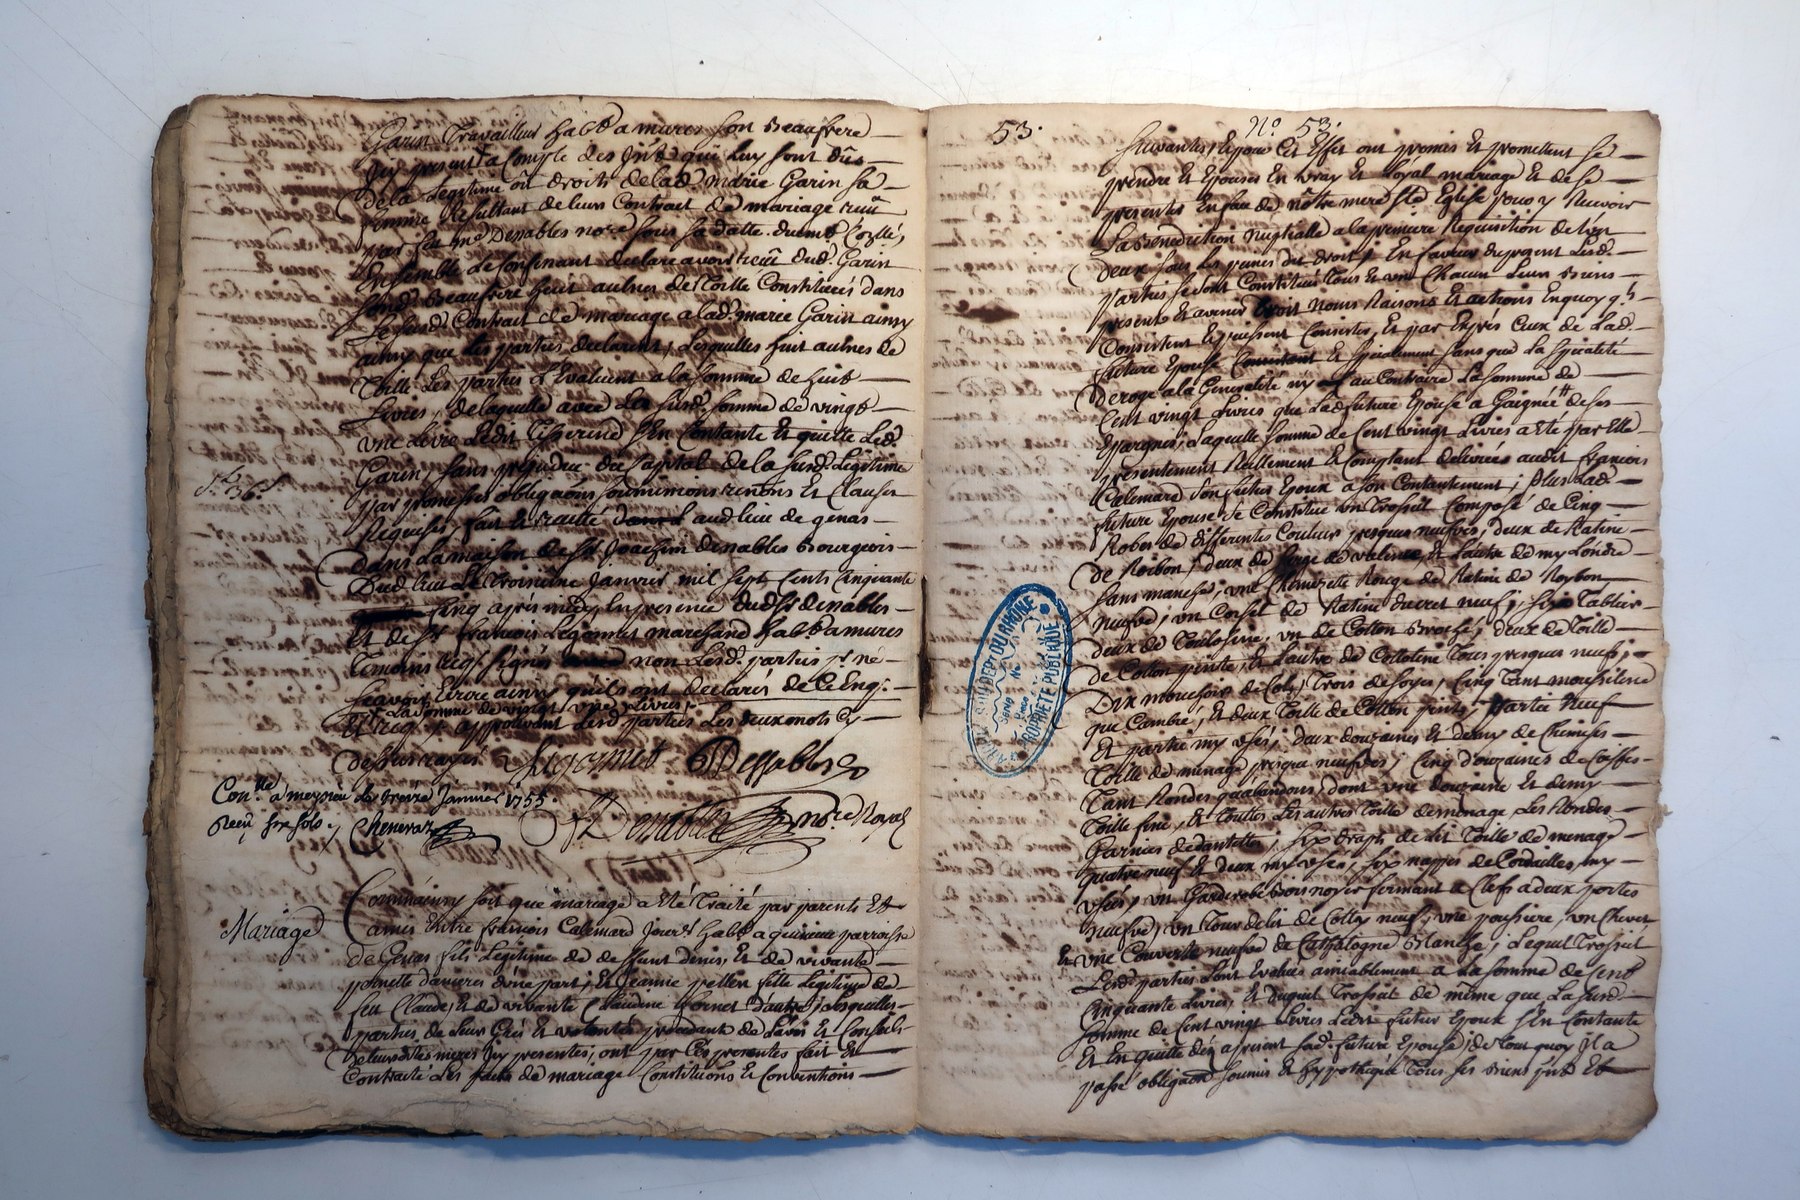 Garin Travailleur habt a mures son Beaufrere
Icy present a Compte des Jnts qui luy sont dûs
de la Legitime où droits de lad. marie Garin sa
femme Resultant de leur Contrat de mariage reçu
par feu me Desnables nore sous sa datte
Ensemble le Confenant declare avoir reçû dud. Garin
sond. Beaufrere huit aulnes de Toille Constituées dans
le susd. Contrat de mariage a lad. marie Garin ainsy
que les parties declarent, Lesquelles huit aulnes de
Toille Les parties Evaluent a la somme de huit
Livres, de laquelle avec la susd. somme de vingt
une Livre Ledit s'En Contante Et quitte Led.
Garin sans prejudice du Capital de la susd. Legitime
par promesses obligaons soumissions renons Et Clauses
Requises, fait Et recitté aud lieu de genas
dans la maison de Sr Joachim desnables Bourgeois
dud. lieu Le Troisieme Janvier mil sept Cents Cinquante
Cinq apres midy En presence dudt Sr desnables
Et de Sr françois Legonnet marchand habt a mures
Temoins signés non Lesd. parties pr ne
sçavoir Ecrire ainsy qu'ils ont declarés de Ce Enq.
La somme de vingt une Livres
Et Req. approuvant Lesd parties Les deux mots
de sus rayés
Desnables
Conllé a meyzieu le treize Janvier 1755.
Receu six sols Chenevaz
Desnables nore Royal
Mariage
Comm'ainsy soit que mariage a Eté Traité par parents Et
amis Entre françois Calemard Jourr habt a parroisse
de Genas fils Legitime de deffunt denis, Et de vivante
ponette d'une part; Et Jeanne pellen fille Legitime de
feu Claude, Et de vivante Claudine d'autre; Lesquelles
parties de Leur Gré Et volonté procedant de L'avis Et Conseils
de leursdites meres Icy presentes, ont par Ces presentes fait Et
Contracté Les pactes de mariage Constitutions Et Conventions
53.
No 53.
suivantes; Epour Cet Effet ont promis Et promettent se
prendre Et Epouser En vray Et Loyal mariage Et de se
presenter En face de nôtre mere Ste Eglise pour y Recevoir
La Benediction Nuptialle a la premiere Requisition de l'un
deux sous les peines du droit; En faveur duquel Lesd.
parties se sont Constitué Tous Et un Chacun Leurs Biens
presents Et avenir Droit noms Raisons Et actions En quoy qls
Consistent Et puissent Consister, Et par Exprés Ceux de Lad.
future Epouse Consistent Et specialement sans que La specialité
deroge a la Generalité ny au Contraire La somme de
Cent vingt Livres que Lad future Epouse a Gaignée de ses
Epargnes; Laquelle somme de Cent vingt Livres a Eté par Elle
presentement Reellement Et Comptant delivrée audit françois
Calemard son futur Epoux a son Contantement; Plus Lad.
future Epouse se Constitue un Trossit Composé de Cinq
Robes de differentes Couleurs presques neufves, deux de Ratine
de Roibon, deux de serge de valence, Et L'autre de my Londre
sans manches, une Chemizette Rouge de Ratine de Roybon
neufve, un Corset de Ratine ducret neuf, six Tabliers
deux de Toilosine, un de Cotton Broché, deux de Toille
de Cotton peinte, Et L'autre de Cottoline Tous presques neufs;
Dix mouchoirs de Col, Trois de soye, Cinq Tant mousseline
que Cambré, Et deux Toille de Cotton peinte, partie Neuf
Et partie my usés; deux douzaines Et demy de Chemises
Toille de menage presque neufves; Cinq douzaines de Coiffes
Tant Rondes qu'abandons, dont une douzaine Et demy
Toille fine, Et Touttes Les autres Toille de menage, Les Rondes
Garnies de dantelle; six draps de Lit Toille de menage
quatre neuf Et deux my usés; six nappes de Cordailles, my
usées; un Garderobe Bois noyer fermant a Clefs a deux portes
neufve; un Tour de lit de neuf, une poussiere, un Chevet
Et une Couverte neufve de Cathalogne Blanche; Lequel Trossit
Lesd. parties Sont Evalué amiablement a La somme de Cent
Cinquante Livres, Et duquel Trossit de même que La susd.
somme de Cent vingt Livres Ledit futur Epoux s'En Contante
Et En quitte dés a present sad. future Epouse; de tout quoy Jl a
passé obligaon soumis Et hypothequé Tous ses Biens pnts Et
PROPRIETE PUBLIQUE